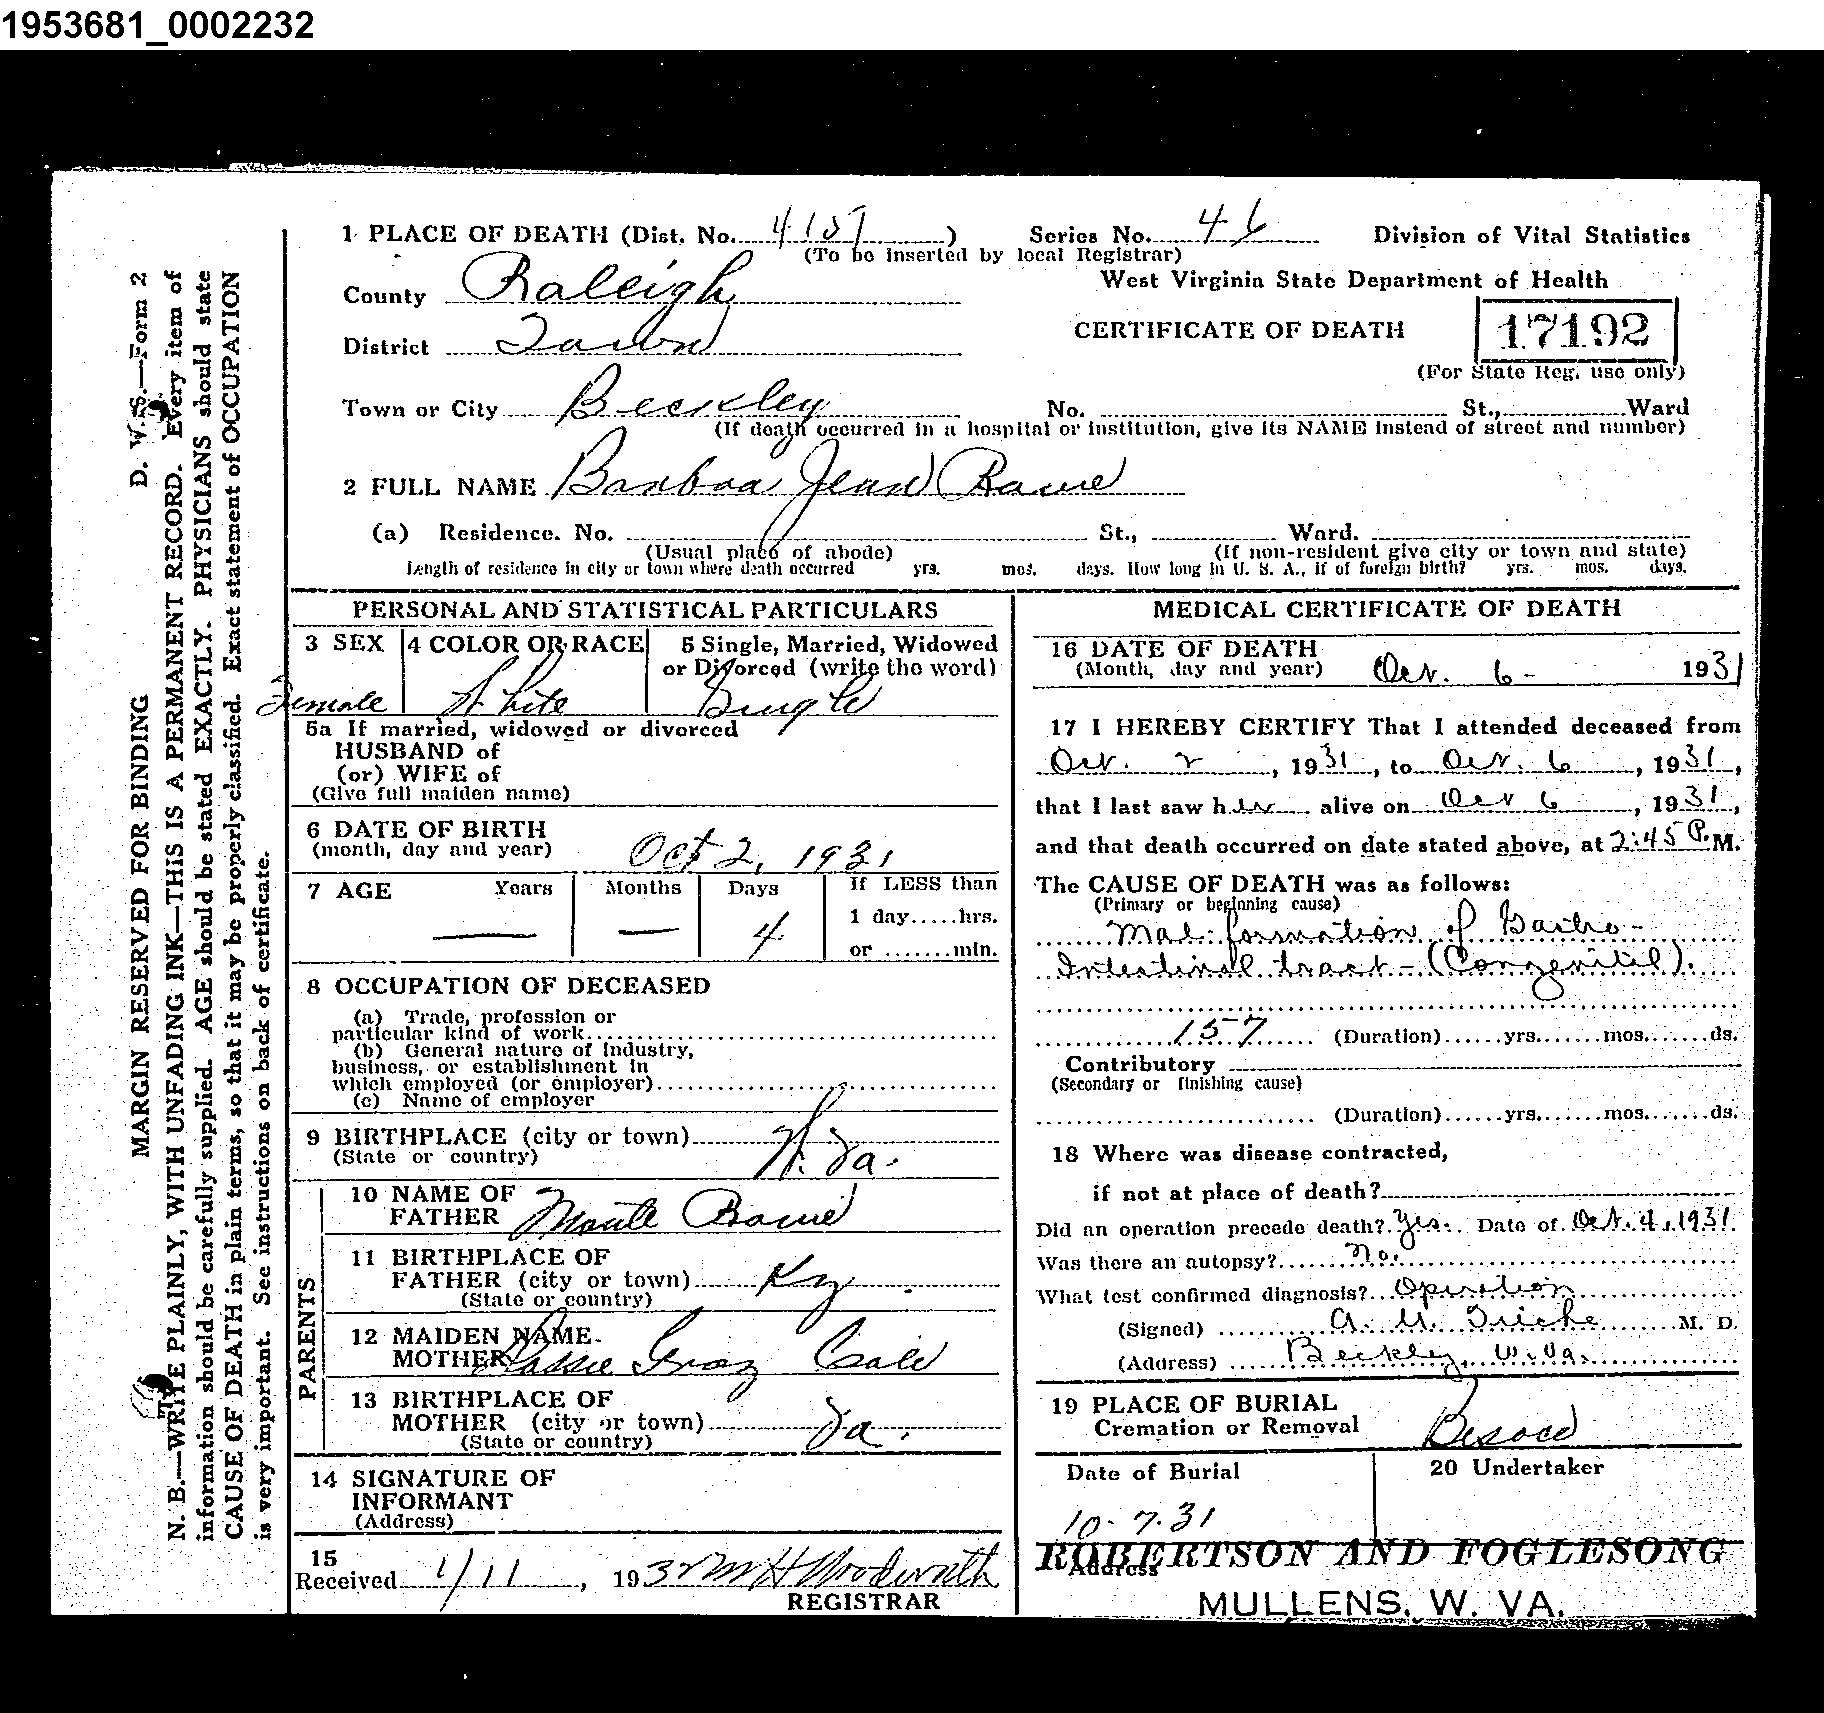 1953681_0002232
1 PLACE OF DEATH (Dist. No. 4157) Series No. 46 Division of Vital Statistics
(To be inserted by local Registrar)
County Raleigh West Virginia State Department of Health
District Town CERTIFICATE OF DEATH 17192
(For State Reg. use only)
Town or City Beckley No. St., Ward
(If death occurred in a hospital or institution, give its NAME instead of street and number)
2 FULL NAME Barbaa Jean
(a) Residence. No. St., Ward.
(Usual place of abode) (If non-resident give city or town and state)
Length of residence in city or town where death occurred yrs. mos. days. How long in U. S. A., if of foreign birth? yrs. mos. days.
PERSONAL AND STATISTICAL PARTICULARS
3 SEX 4 COLOR OR RACE 5 Single, Married, Widowed
or Divorced (write the word)
Female White Single
5a If married, widowed or divorced
HUSBAND of
(or) WIFE of
(Give full maiden name)
6 DATE OF BIRTH
(month, day and year) Oct 2, 1931
7 AGE Years Months Days If LESS than
1 day.....hrs.
— — 4 or .......min.
8 OCCUPATION OF DECEASED
(a) Trade, profession or
particular kind of work
(b) General nature of industry,
business, or establishment in
which employed (or employer)
(c) Name of employer
9 BIRTHPLACE (city or town)
(State or country) W. Va.
10 NAME OF
FATHER
11 BIRTHPLACE OF
FATHER (city or town) Ky.
(State or country)
PARENTS
12 MAIDEN NAME
MOTHER Gray
13 BIRTHPLACE OF
MOTHER (city or town) Va.
(State or country)
14 SIGNATURE OF
INFORMANT
(Address)
15
Received 1/11, 1932 M H Woodworth
REGISTRAR
MEDICAL CERTIFICATE OF DEATH
16 DATE OF DEATH
(Month, day and year) Oct. 6 - 1931
17 I HEREBY CERTIFY That I attended deceased from
Oct. 2, 1931, to Oct. 6, 1931,
that I last saw her alive on Oct 6, 1931,
and that death occurred on date stated above, at 2:45 P. M.
The CAUSE OF DEATH was as follows:
(Primary or beginning cause)
Mal-formation of Gastro-
Intestinal tract - (Congenital).
157 (Duration)......yrs.......mos.......ds.
Contributory
(Secondary or finishing cause)
(Duration)......yrs.......mos.......ds.
18 Where was disease contracted,
if not at place of death?
Did an operation precede death? Yes. Date of Oct. 4, 1931.
Was there an autopsy? No.
What test confirmed diagnosis? Operation
(Signed) A. U. Tieche M. D.
(Address) Beckley, W. Va.
19 PLACE OF BURIAL
Cremation or Removal Besoco
Date of Burial 20 Undertaker
10-7-31
ROBERTSON AND FOGLESONG
Address
MULLENS, W. VA.
D. W. S.—Form 2
MARGIN RESERVED FOR BINDING
N. B.—WRITE PLAINLY, WITH UNFADING INK—THIS IS A PERMANENT RECORD. Every item of
information should be carefully supplied. AGE should be stated EXACTLY. PHYSICIANS should state
CAUSE OF DEATH in plain terms, so that it may be properly classified. Exact statement of OCCUPATION
is very important. See instructions on back of certificate.